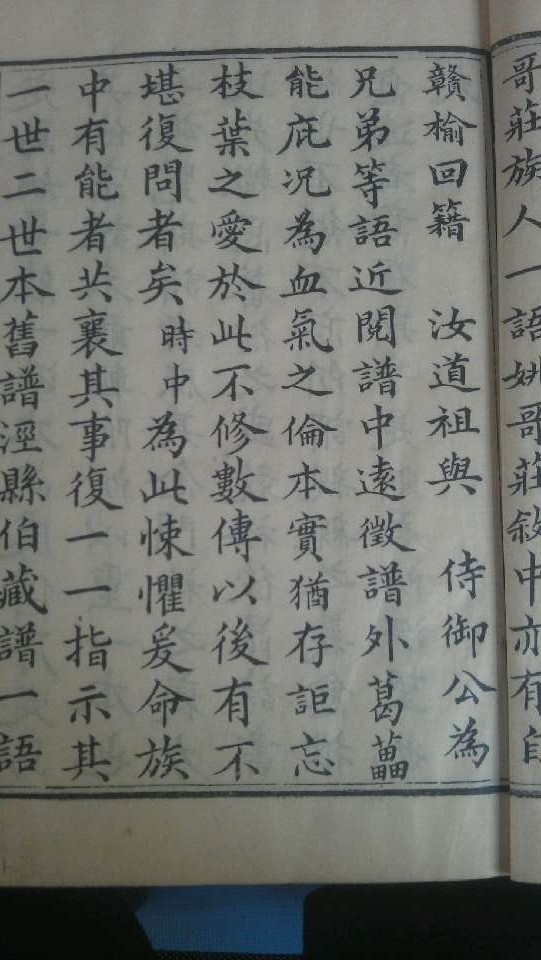 哥莊族人一語姚哥莊敘中亦有自
贛榆回籍 汝道祖與 侍御公為
兄弟等語近閱譜中遠徵譜外葛藟
能庇况為血氣之倫本實猶存詎忘
枝葉之愛於此不修數傳以後有不
堪復問者矣時中為此悚懼爰命族
中有能者共襄其事復一一指示其
一世二世本舊譜涇縣伯藏譜一語